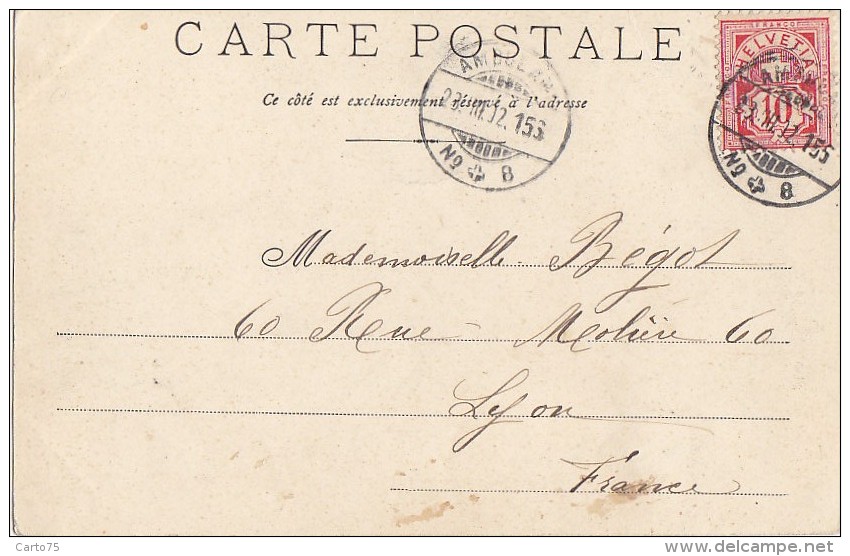 CARTE POSTALE
Ce côté est exclusivement réservé à l'adresse
FRANCO
HELVETIA
10
AMBULANT
No 8
AMBULANT
No 8
Mademoiselle Bégot
60 Rue Molière 60
Lyon
France
Carto75
delcampe.net